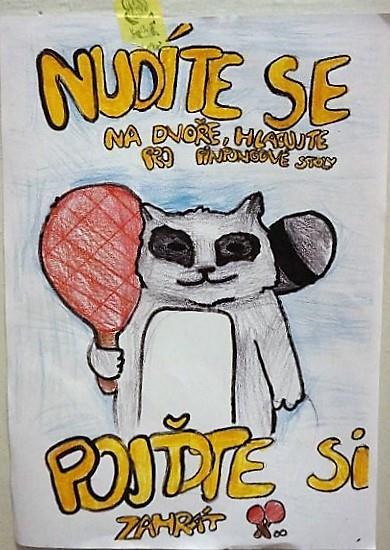 NUDÍTE SE
NA DVOŘE, HLASUJTE
PRO PINPONGOVÉ STOLY
POJĎTE Si
ZAHRÁT